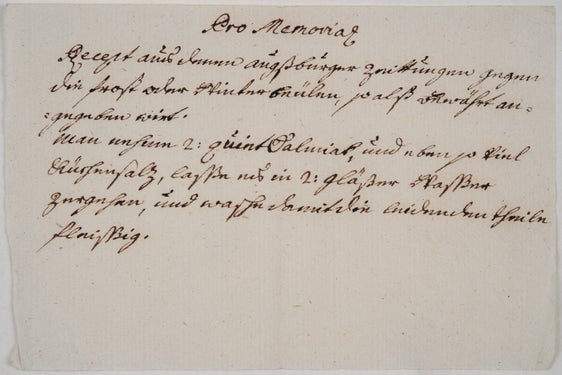 Pro Memoria
Recept aus denen Augsburger Zeittungen gegen
die frost oder Winterbeülen, so alß bewährt an-
gegeben wirt.
Man nehme 2: quint Salmiak, und eben so viel
Küchensalz, lasse es in 2: gläßer Wasser
zergehen, und wasche damit die leidenden theile
fleissig.